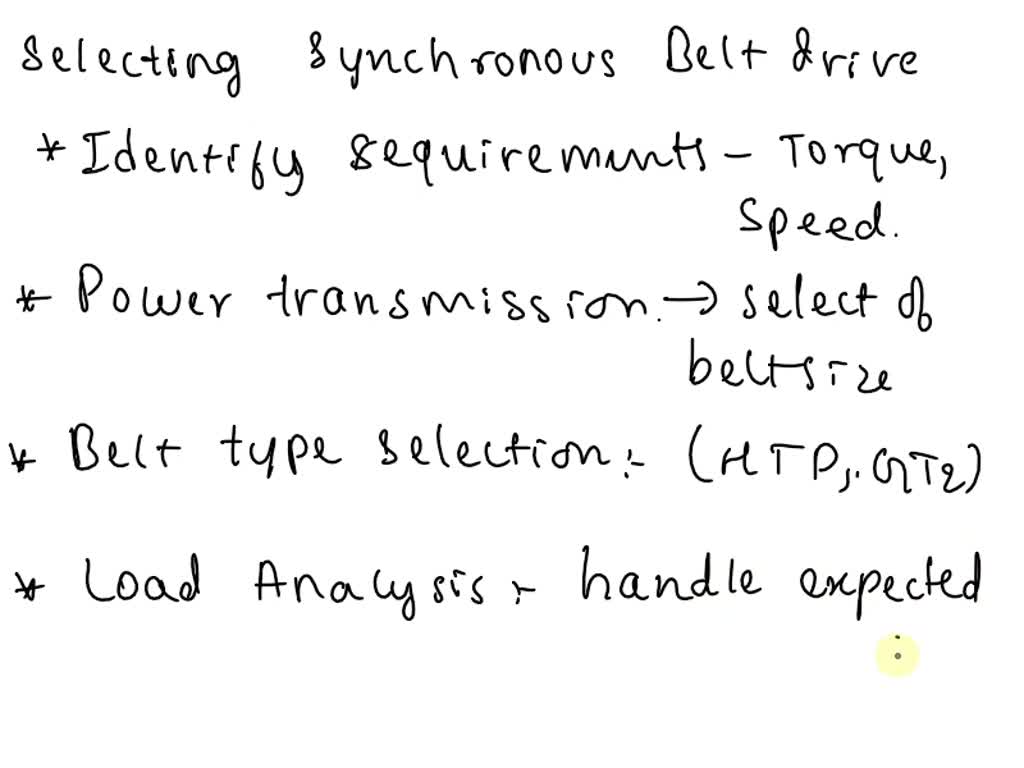 Selecting Synchronous Belt drive
* Identify requirements - Torque,
Speed.
* Power transmission. → select of
beltsize
* Belt type selection :- (HTD, GT2)
* Load Analysis :- handle expected